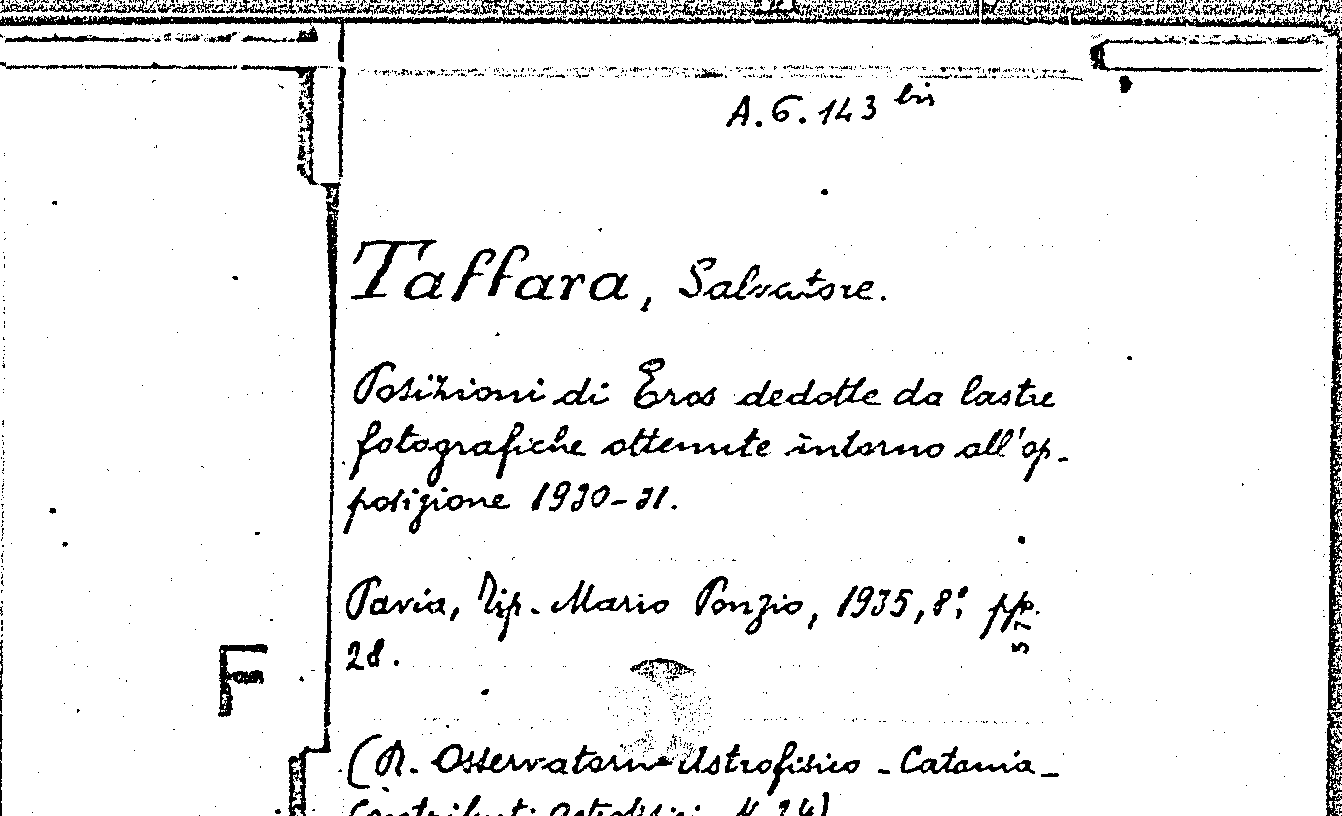 A.6.143 bis
Taffara, Salvatore.
Posizioni di Eros dedotte da lastre
fotografiche ottenute intorno all'op-
posizione 1930-31.
Pavia, Tip. Mario Ponzio, 1935, 8º, pp.
28.
(R. Osservatorio Astrofisico - Catania -
Contributi astrofisici N. 24)